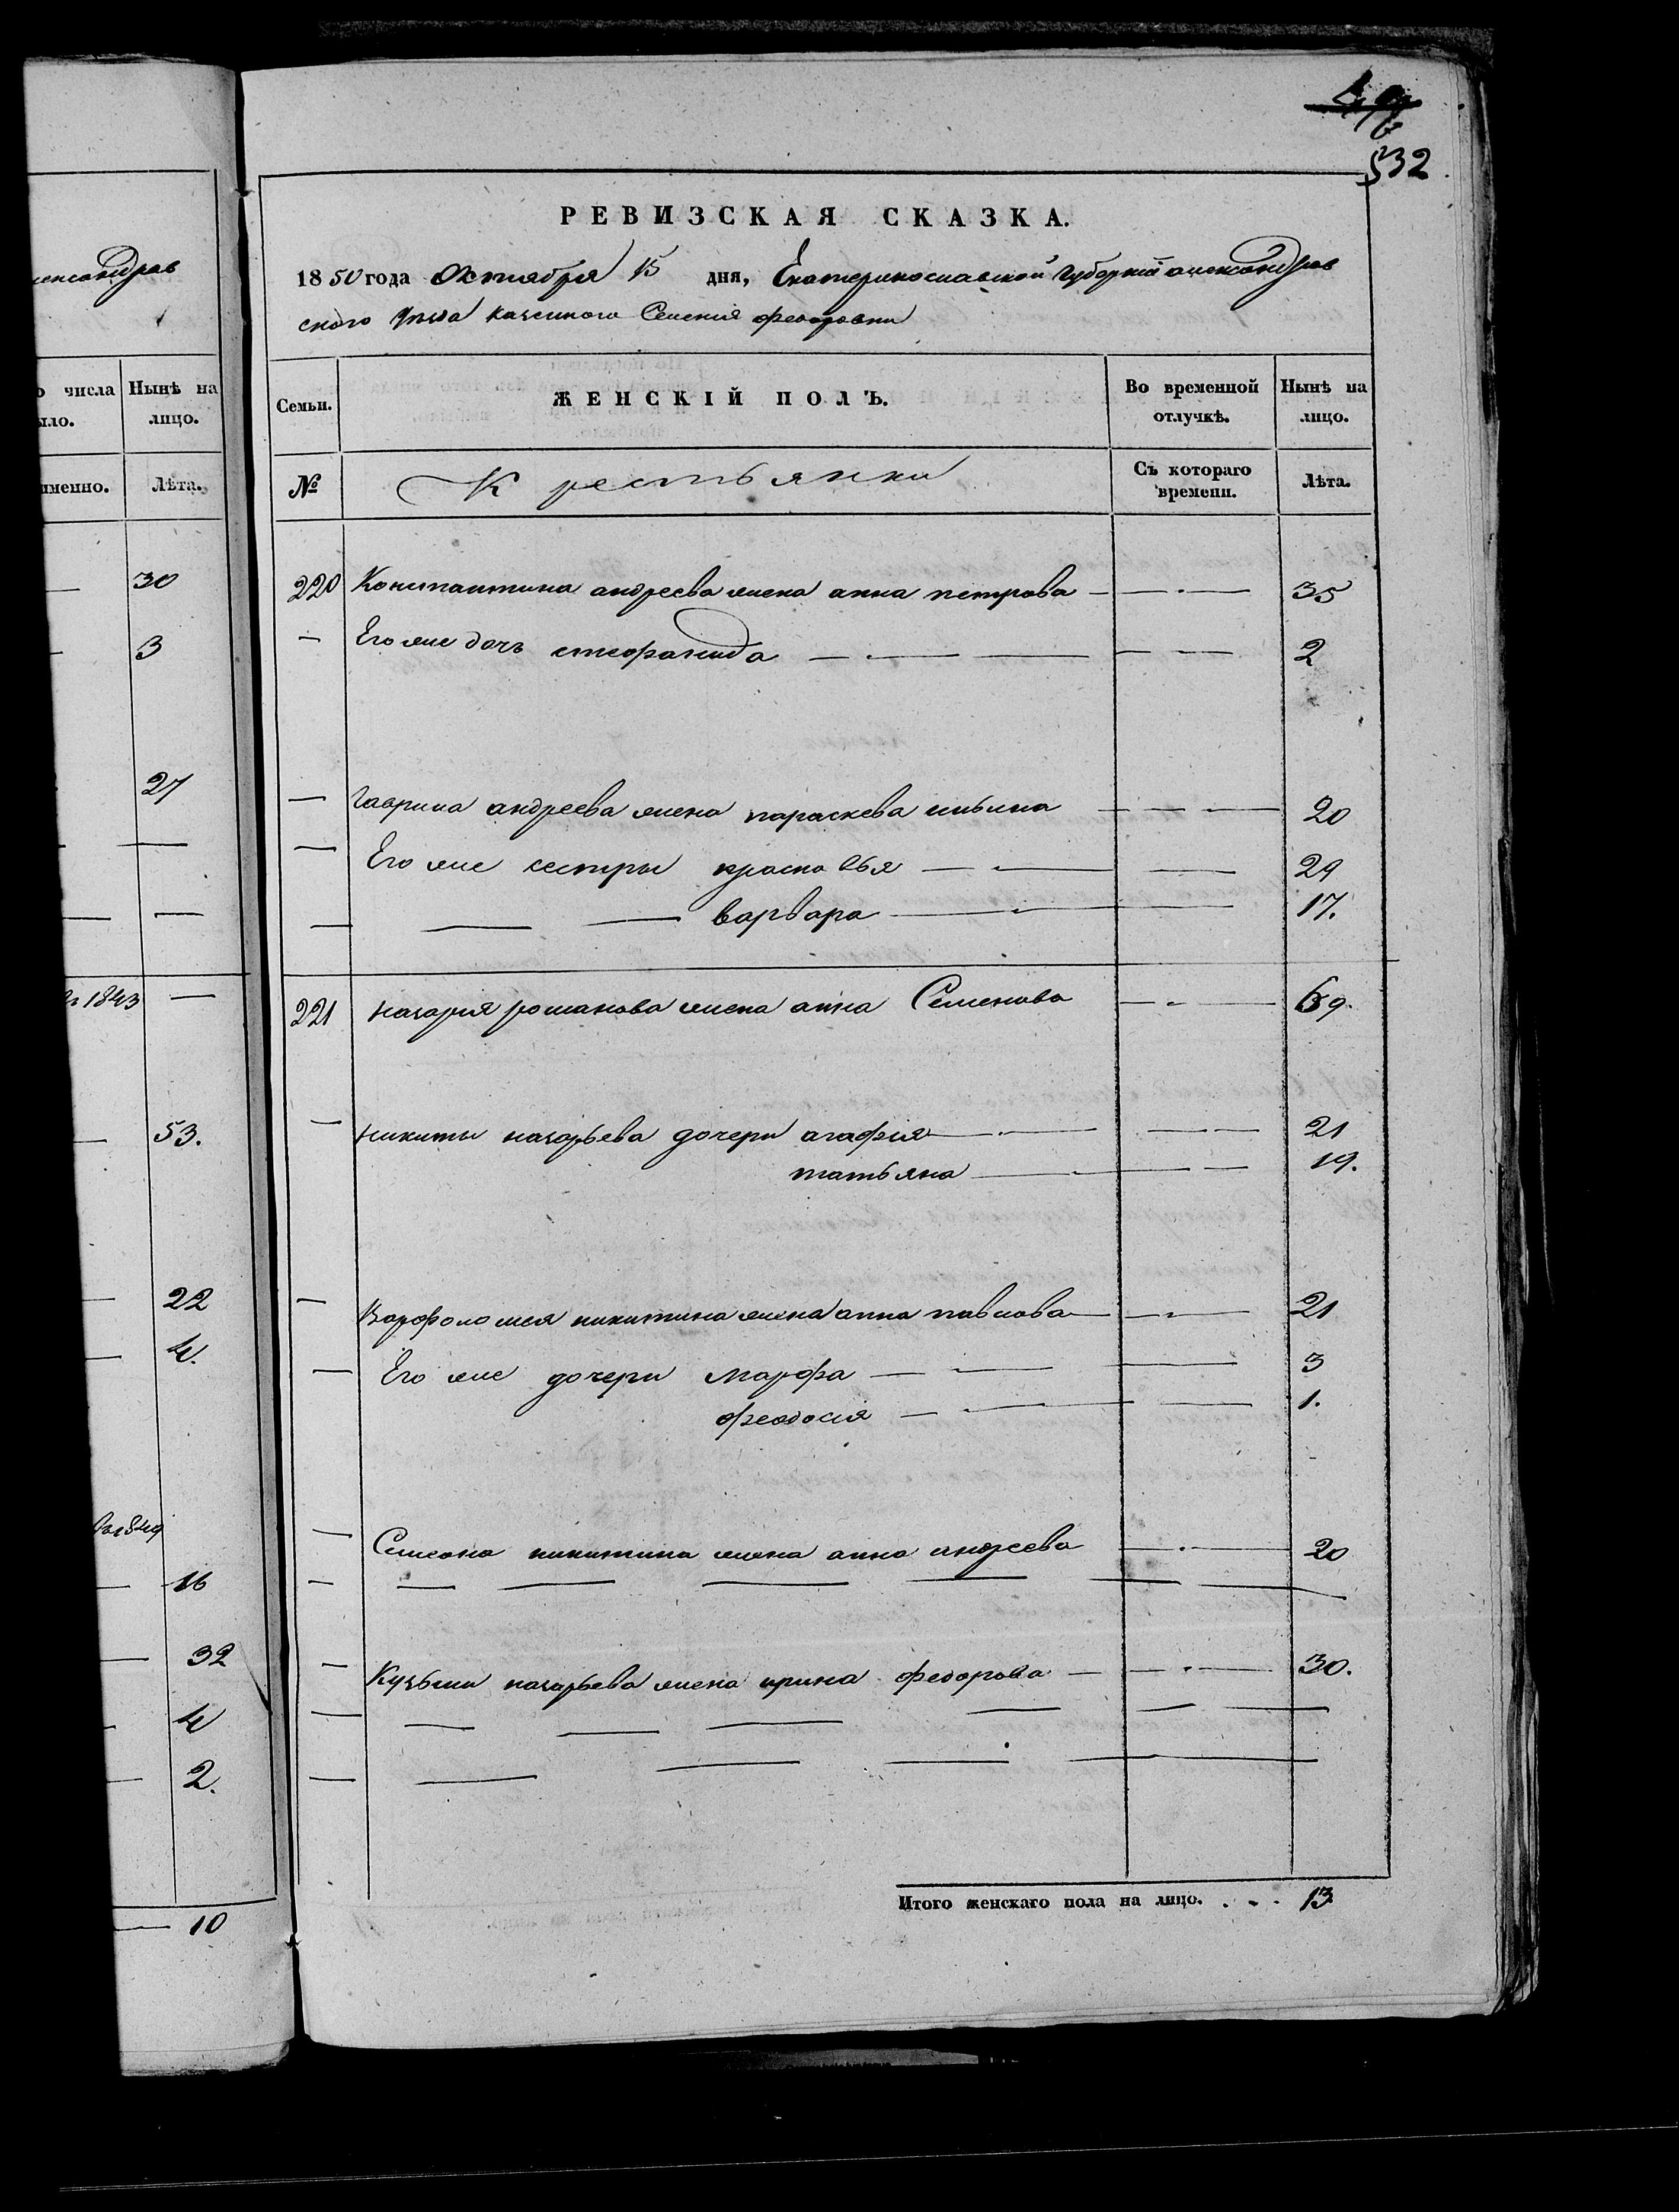 лександров
о числа Нынѣ на
ыло. лицо.
именно. Лѣта.
30
3
27
1843
53.
22
4.
1849
16
32
4
2.
10
532
РЕВИЗСКАЯ СКАЗКА.
1850 года Октября 15 дня, Екатеринославской губернии александров
ского уезда казенного Селения федоровки
Семьи. ЖЕНСКІЙ ПОЛЪ. Во временной отлучкѣ. Нынѣ на лицо.
№ Крестьянки Съ котораго времени. Лѣта.
220 Константина андреева жена анна петрова — 35
— Его же дочь стефанида — 2
— гаврила андреева жена параскева ильина — 20
— Его же сестры 29
— варвара — 17.
221 назария романова жена анна Семенова — 69.
— никиты назарьева дочери агафия — 21
татьяна — 19.
— Варфоломея никитина жена анна павлова — 21
— Его же дочери марфа — 3
феодосия — 1.
— Симеона никитина жена анна андреева — 20
— Кузьми назарьева жена ирина федорова — 30.
Итого женскаго пола на лицо. . . . 13